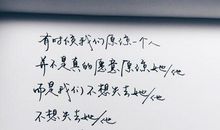 有时候我们原谅一个人
并不是真的愿意原谅她/他
而是我们不想失去她/他
不想失去她/他